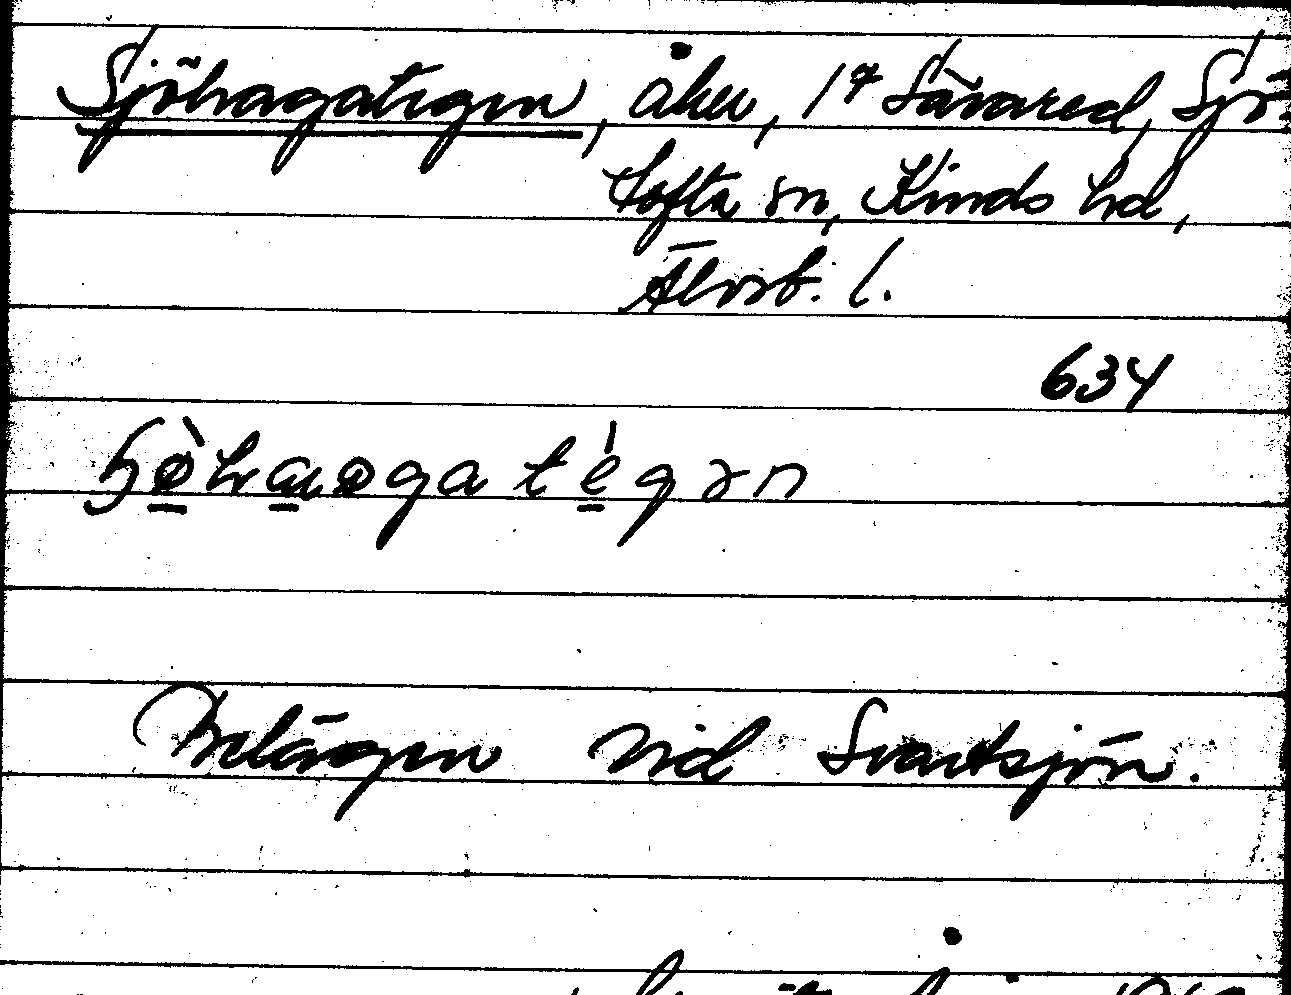 Sjöhagategen, åker, 1⁴ Sävared, Sjö-
tofta sn, Kinds hd,
Älvsb. l.
634
Belägen vid Svartsjön.